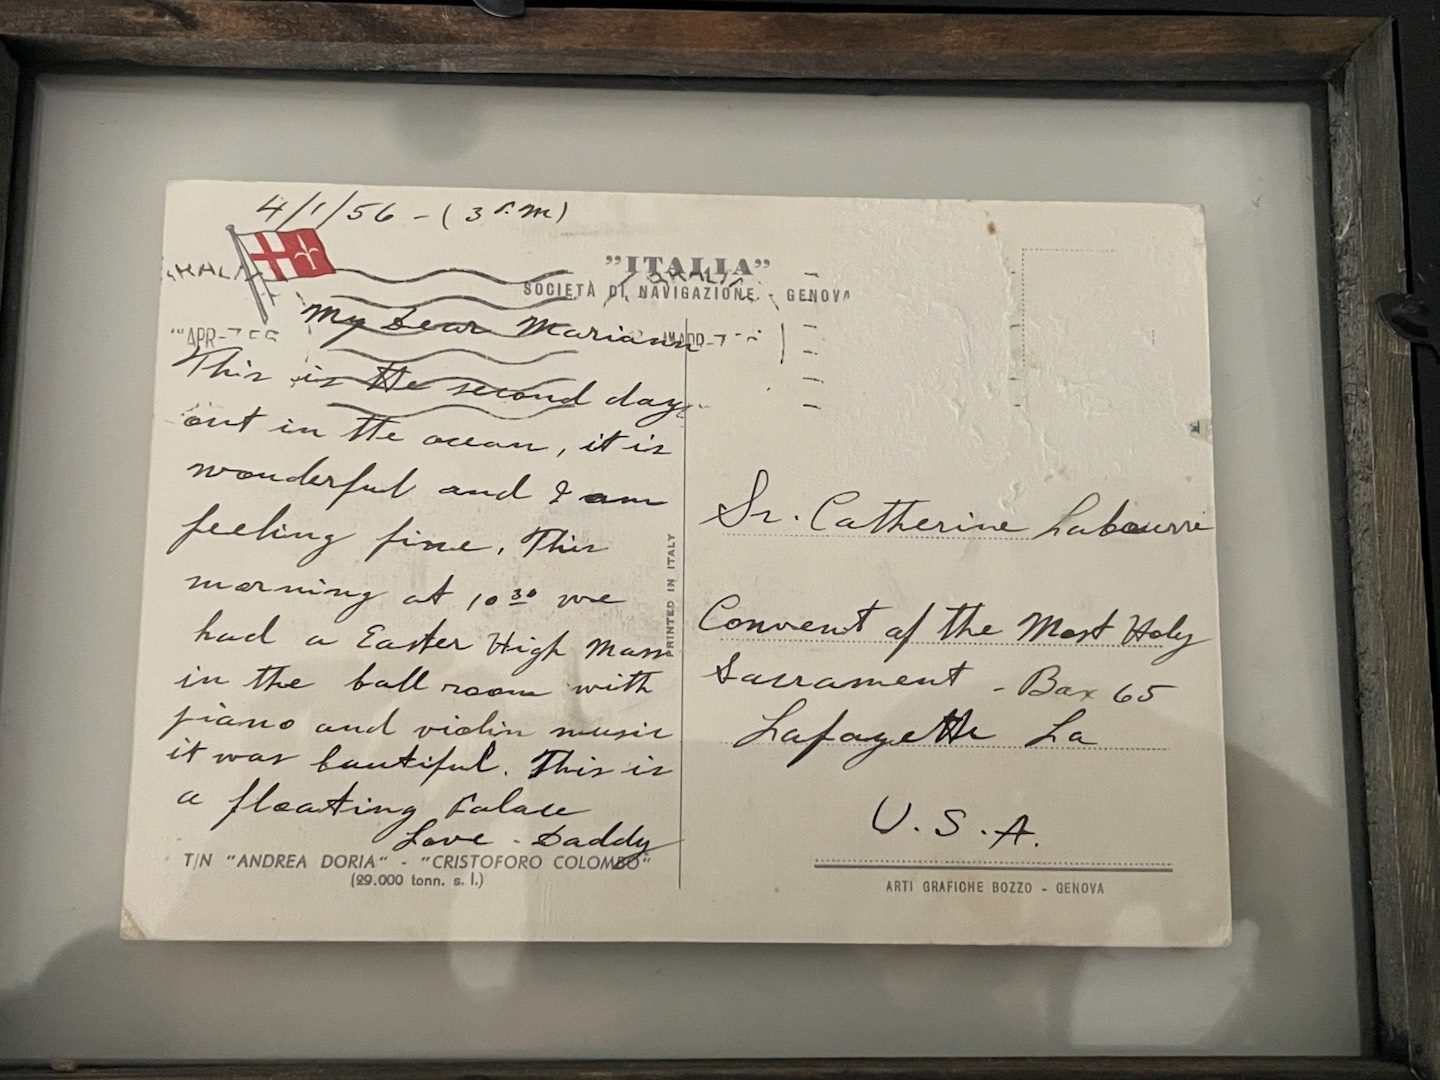 4/1/56 - (3 P.M)
"ITALIA"
SOCIETÀ DI NAVIGAZIONE - GENOVA
My Dear Mariann
This is the second day
out in the ocean, it is
wonderful and I am
feeling fine. This
morning at 10 30 we
had a Easter High Mass
in the ball room with
piano and violin music
it was bautiful. This is
a floating Palace
Love - Daddy
T/N "ANDREA DORIA" - "CRISTOFORO COLOMBO"
(29.000 tonn. s. l.)
PRINTED IN ITALY
Sr. Catherine Labourre
Convent of the Most Holy
Sacrament - Box 65
Lafayette La
U.S.A.
ARTI GRAFICHE BOZZO - GENOVA